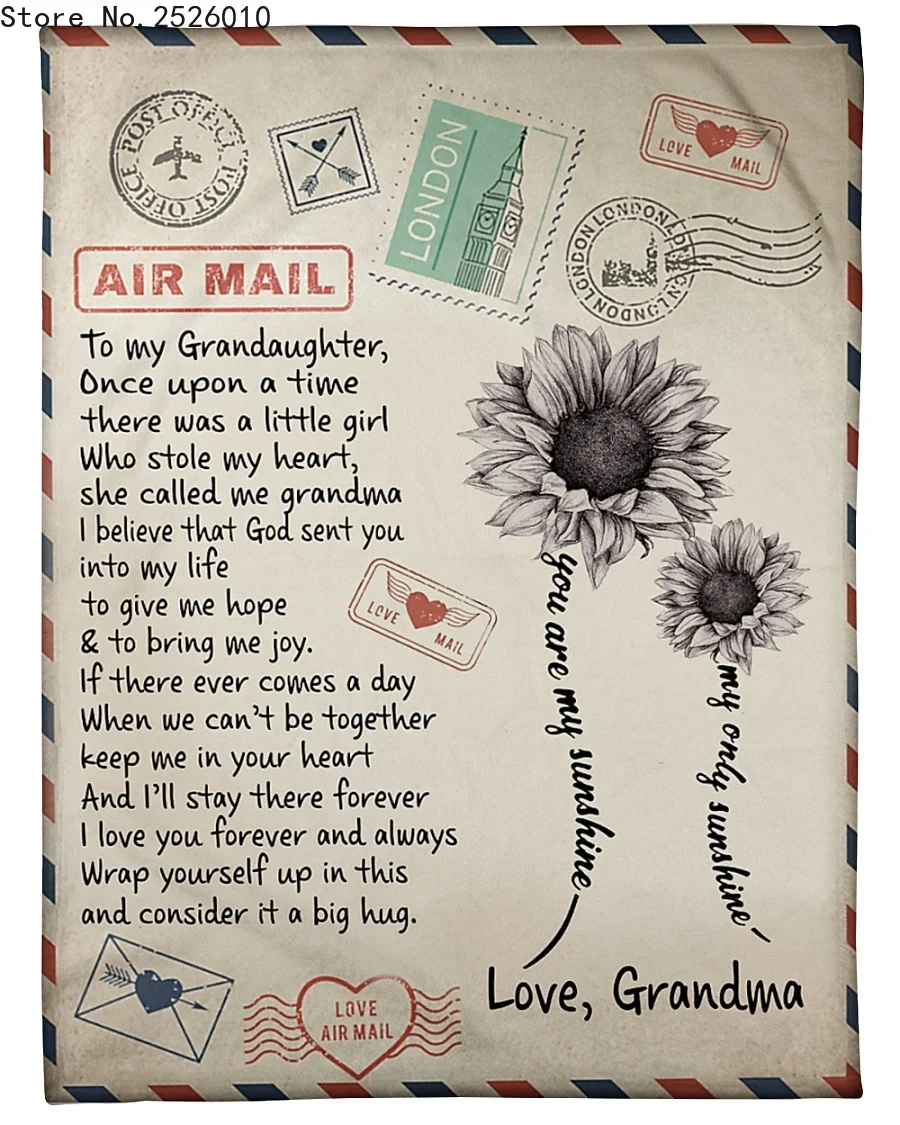 Store No.2526010
POST OFFICE
POST OFFICE
LONDON
LOVE
MAIL
LONDON LONDON LONDON LONDON
AIR MAIL
To my Grandaughter,
Once upon a time
there was a little girl
Who stole my heart,
she called me grandma
I believe that God sent you
into my life
to give me hope
& to bring me joy.
If there ever comes a day
When we can't be together
keep me in your heart
And I'll stay there forever
I love you forever and always
Wrap yourself up in this
and consider it a big hug.
LOVE
MAIL
you are my sunshine
my only sunshine
Love, Grandma
LOVE
AIR MAIL